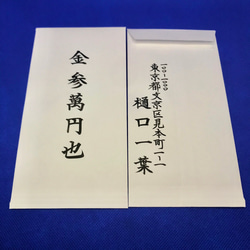 金参萬円也
一〇〇-一〇〇〇
東京都文京区見本町一-一
樋口一葉